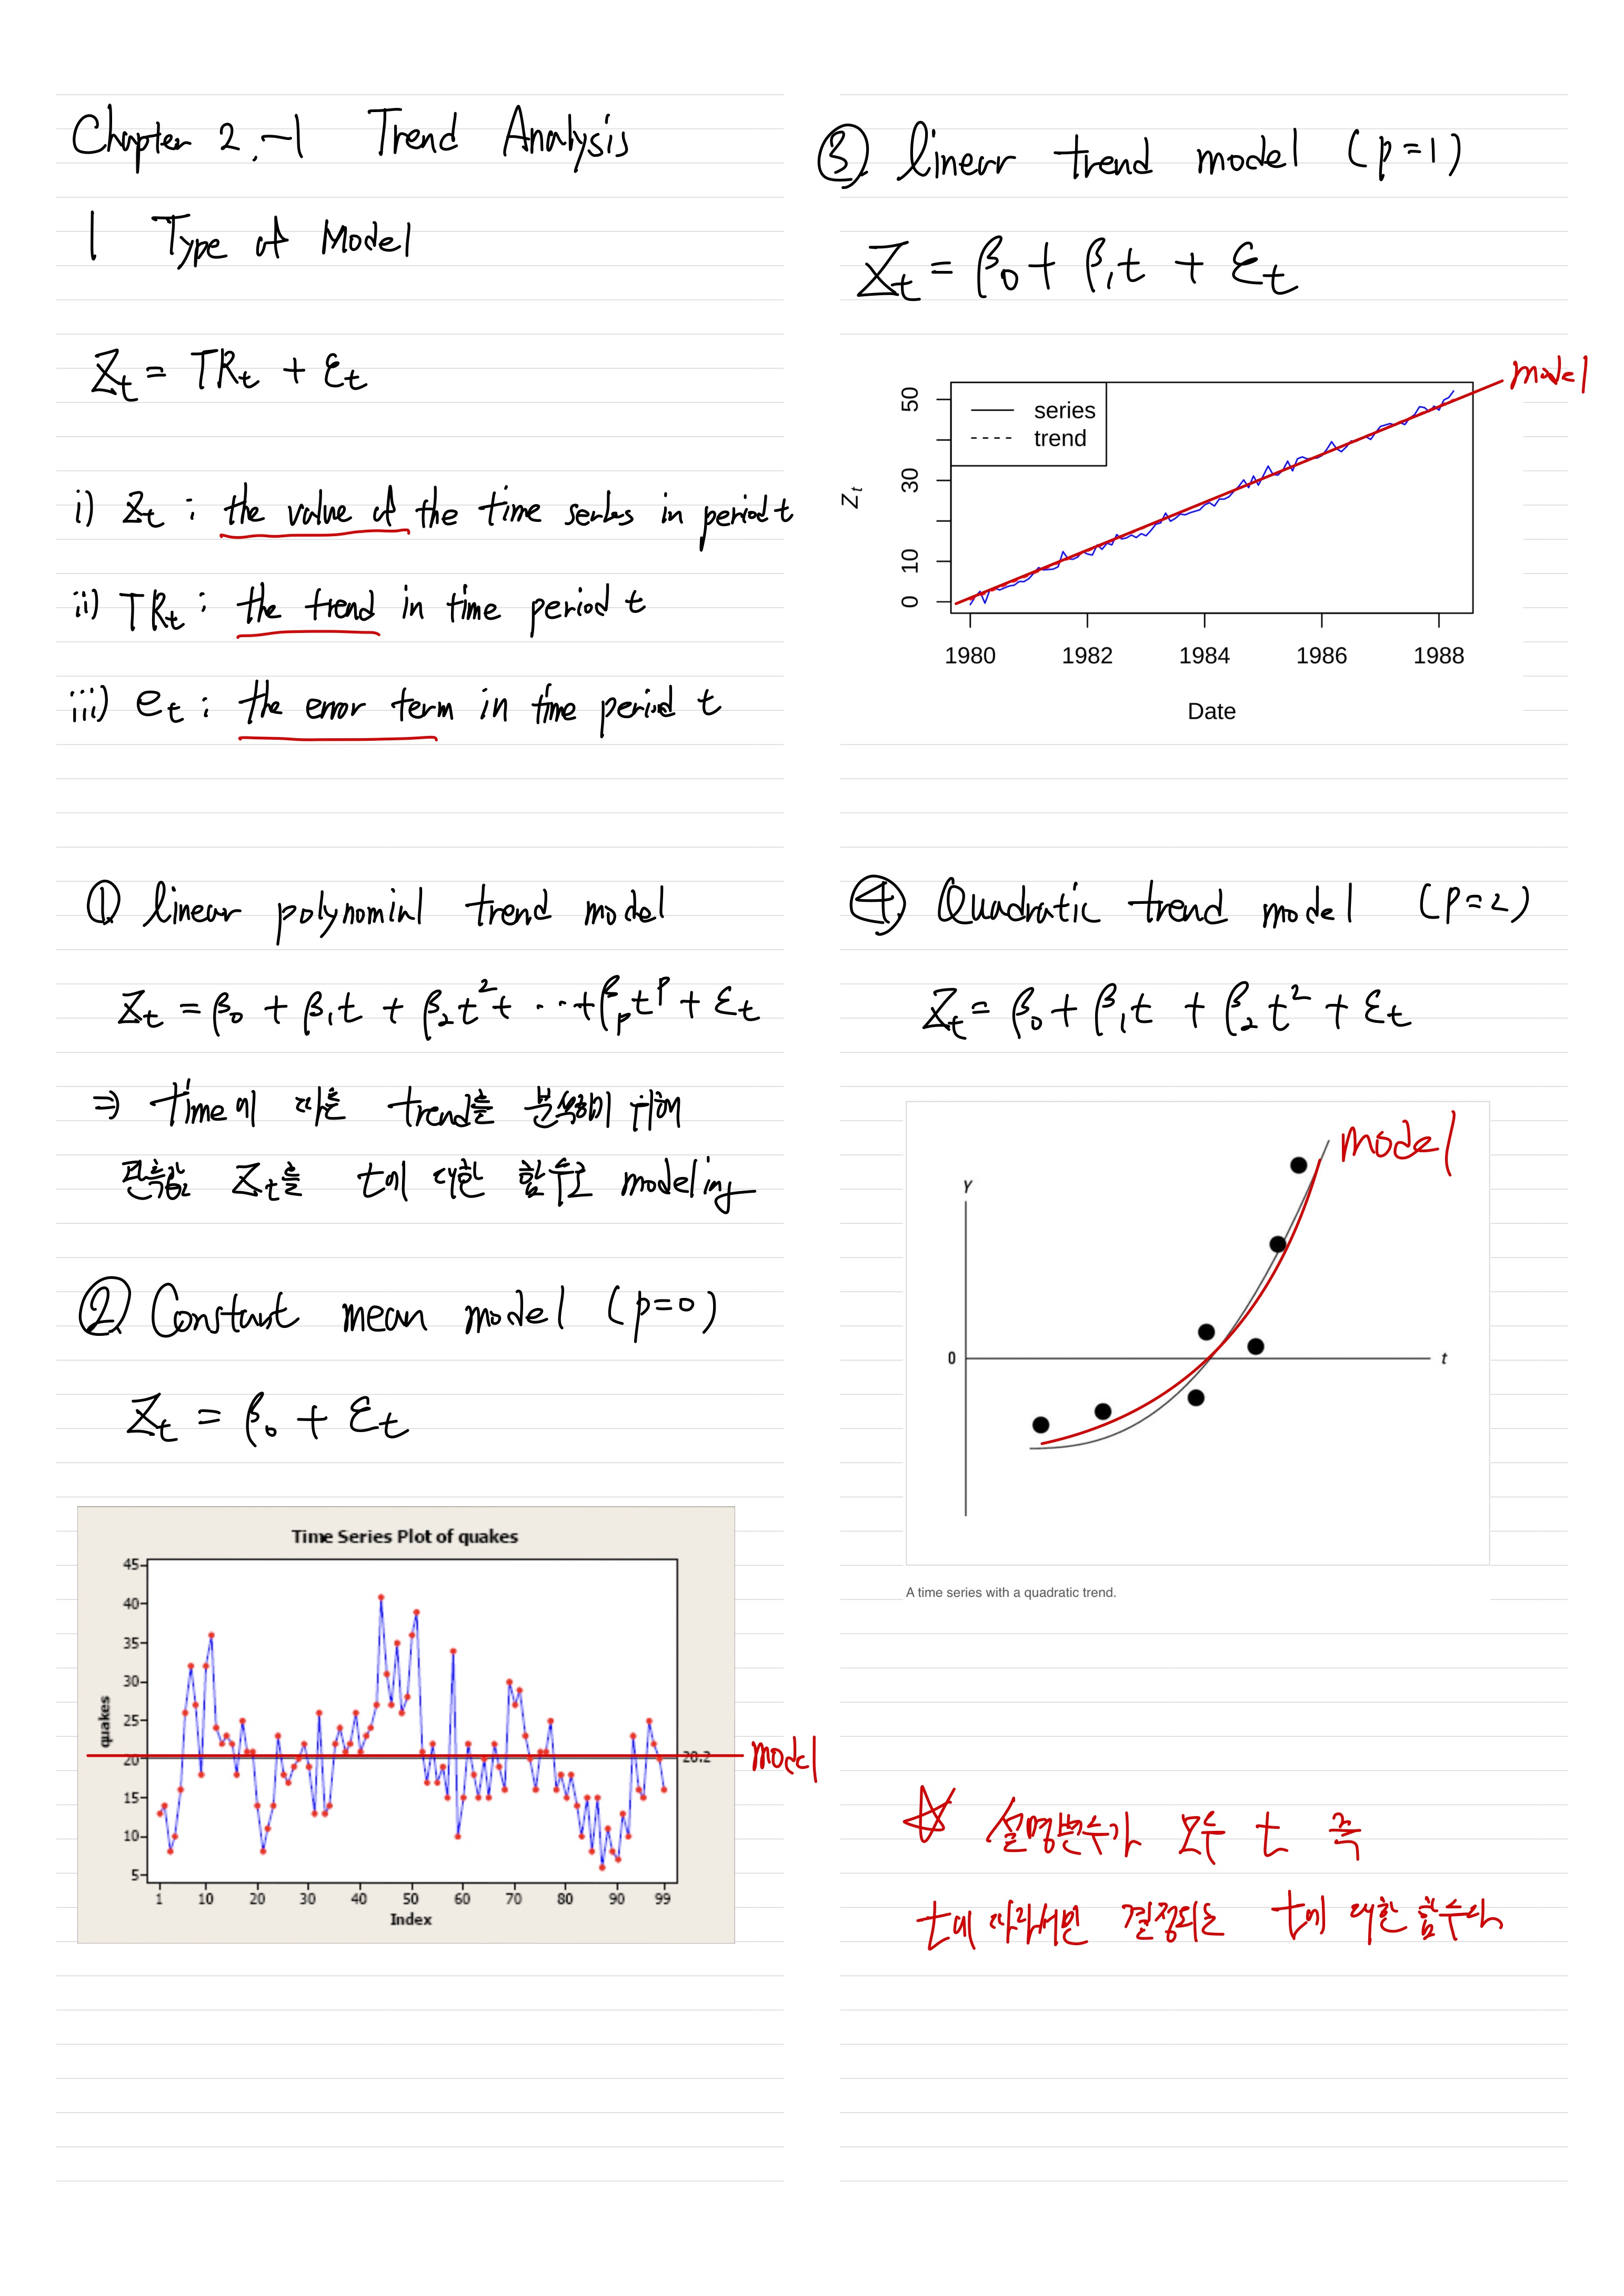 Chapter 2.-1 Trend Analysis
1 Type of Model
Zt = TRt + εt
i) Zt : the value of the time series in period t
ii) TRt : the trend in time period t
iii) et : the error term in time period t
① linear polynomial trend model
Zt = β0 + β1t + β2t² + ··· + βpt^p + εt
⇒ time에 따른 trend를 분석하기 위해
관측한 Zt를 t에 대한 함수로 modeling
② Constant mean model (p=0)
Zt = β0 + εt
Time Series Plot of quakes
45
40
35
30
25
20
15
10
5
quakes
20.2
model
1 10 20 30 40 50 60 70 80 90 99
Index
③ linear trend model (p=1)
Zt = β0 + β1t + εt
model
series
trend
50
30
10
0
Zt
1980 1982 1984 1986 1988
Date
④ Quadratic trend model (p=2)
Zt = β0 + β1t + β2t² + εt
model
Y
0
t
A time series with a quadratic trend.
☆ 설명변수가 모두 t 즉
t에 따라서만 결정되는 t에 대한 함수다